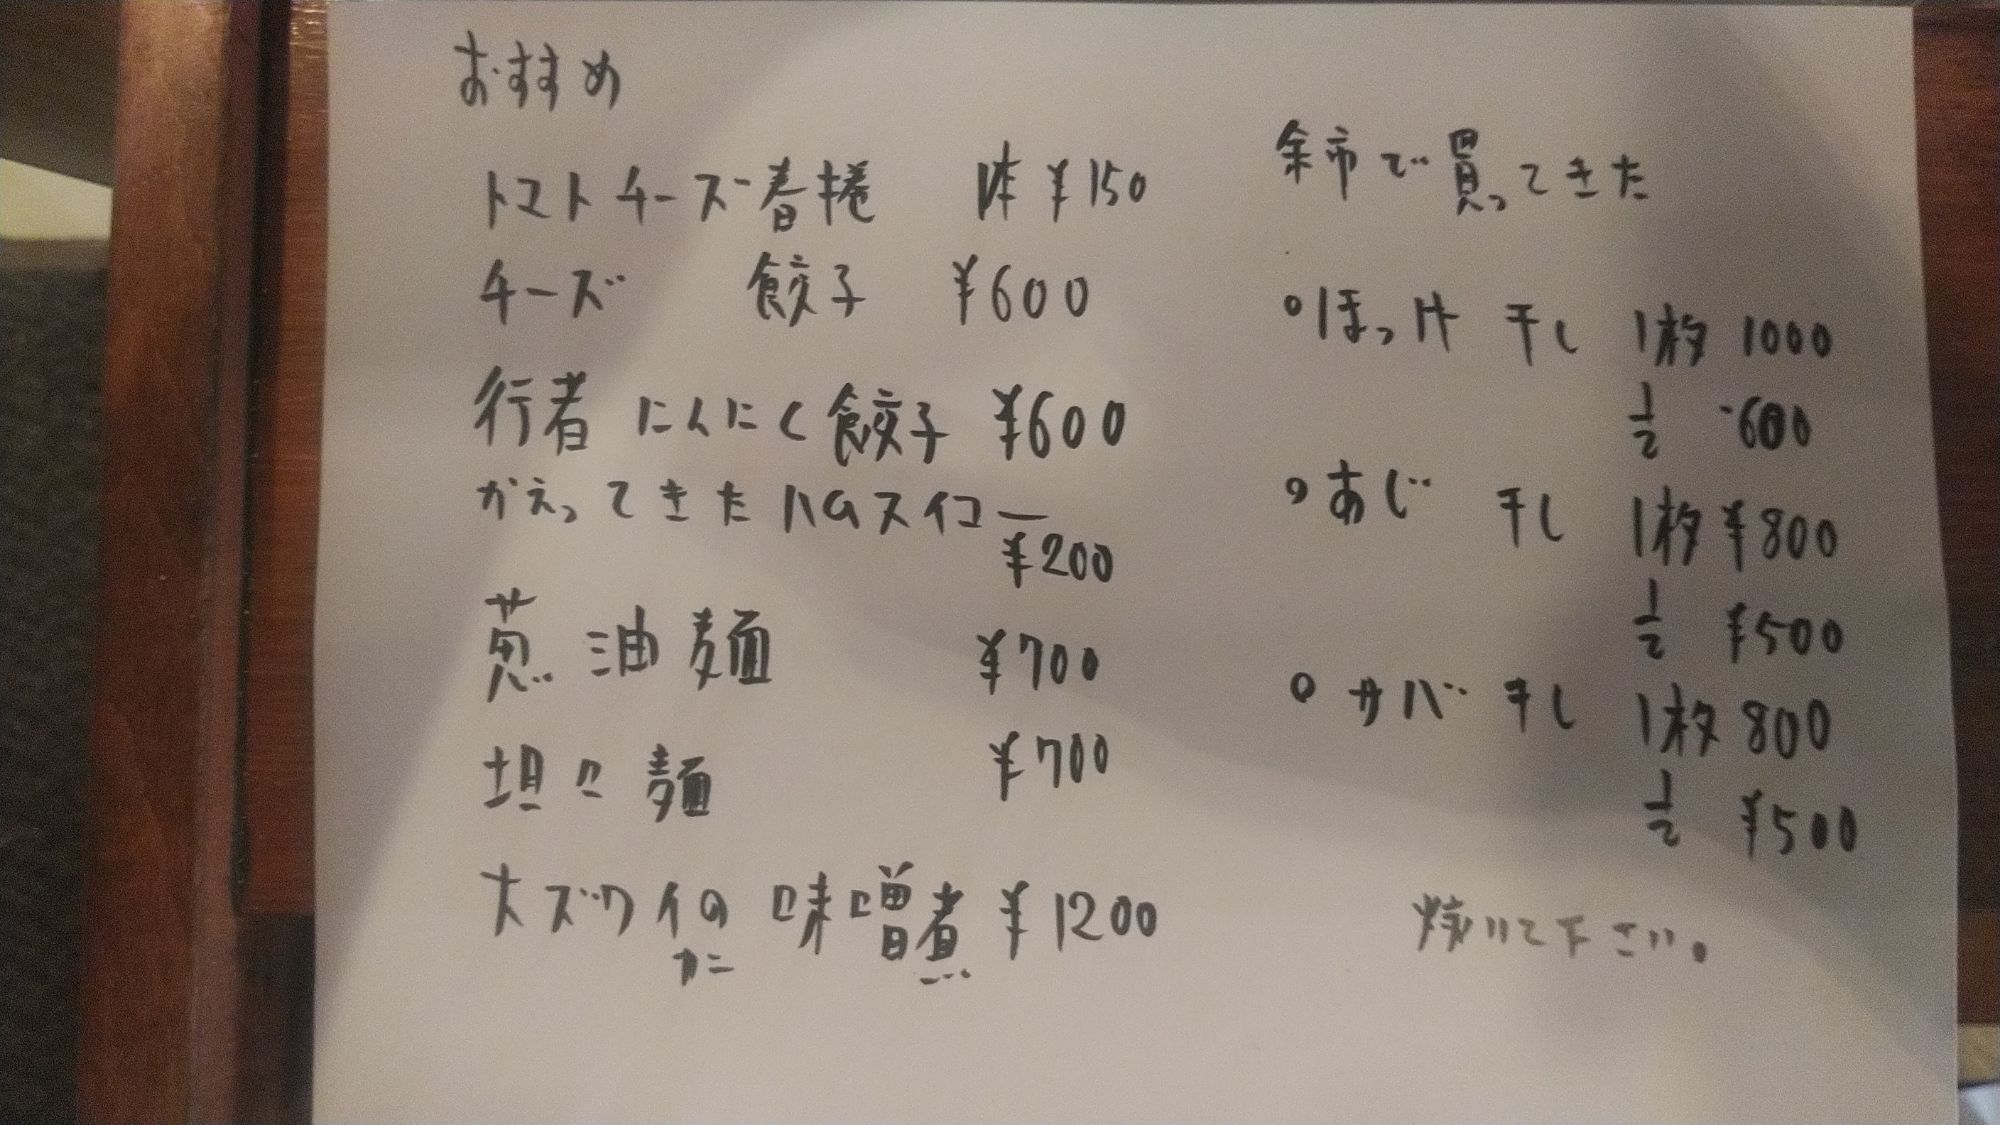 おすすめ
トマトチーズ春捲 1本 ¥150
チーズ 餃子 ¥600
行者にんにく餃子 ¥600
かえってきたハムスイコー
¥200
葱油麺 ¥700
坦々麺 ¥700
大ズワイの味噌煮 ¥1200
カニ
余市で買ってきた
ほっけ 干し 1枚 1000
1/2 600
あじ 干し 1枚 ¥800
1/2 ¥500
サバ 干し 1枚 800
1/2 ¥500
焼いて下さい。